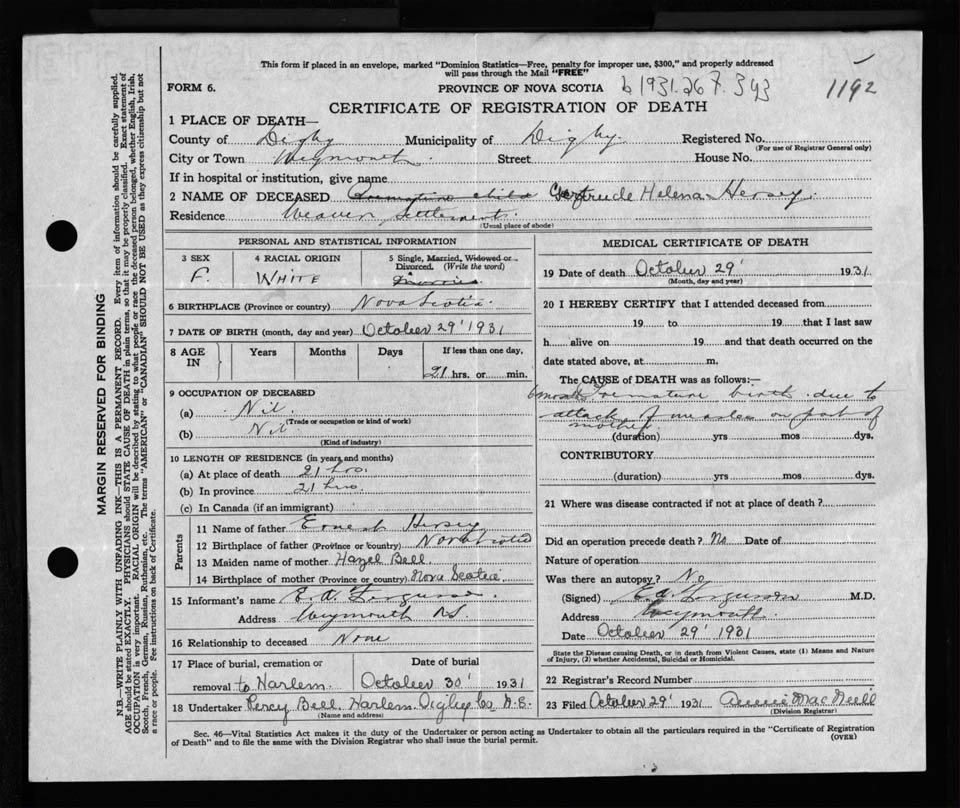 This form if placed in an envelope, marked "Dominion Statistics—Free, penalty for improper use, $300," and properly addressed
will pass through the Mail "FREE"
FORM 6. PROVINCE OF NOVA SCOTIA b 1931.267.343 1192
CERTIFICATE OF REGISTRATION OF DEATH
1 PLACE OF DEATH—
County of Digby Municipality of Digby. Registered No.
(For use of Registrar General only)
City or Town Weymouth. Street House No.
If in hospital or institution, give name
2 NAME OF DECEASED child Gertrude Helena Hersey.
Residence Weaver Settlement.
(Usual place of abode)
PERSONAL AND STATISTICAL INFORMATION
3 SEX 4 RACIAL ORIGIN 5 Single, Married, Widowed or
Divorced. (Write the word)
F. WHITE
6 BIRTHPLACE (Province or country) Nova Scotia.
7 DATE OF BIRTH (month, day and year) October 29' 1931
8 AGE IN Years Months Days If less than one day,
21 hrs. or min.
9 OCCUPATION OF DECEASED
(a) Nil.
(Trade or occupation or kind of work)
(b) Nil
(Kind of industry)
10 LENGTH OF RESIDENCE (in years and months)
(a) At place of death 21 hrs.
(b) In province 21 hrs.
(c) In Canada (if an immigrant)
Parents
11 Name of father Ernest Hersey
12 Birthplace of father (Province or country) Nova Scotia
13 Maiden name of mother Hazel Bell.
14 Birthplace of mother (Province or country) Nova Scotia.
15 Informant's name E. A. Ferguson.
Address Weymouth NS
16 Relationship to deceased None
17 Place of burial, cremation or Date of burial
removal to Harlem. October 30' 1931
18 Undertaker Percy Bell. Harlem. Digby Co N.S.
(Name and address)
MEDICAL CERTIFICATE OF DEATH
19 Date of death October 29' 1931
(Month, day and year)
20 I HEREBY CERTIFY that I attended deceased from
19 to 19 that I last saw
h alive on 19 and that death occurred on the
date stated above, at m.
The CAUSE of DEATH was as follows:—
6 mos Premature birth due to
attack of measles on part of
mother.
(duration) yrs mos dys.
CONTRIBUTORY
(duration) yrs mos dys.
21 Where was disease contracted if not at place of death?
Did an operation precede death? No Date of
Nature of operation
Was there an autopsy? No
(Signed) E.A. Ferguson M.D.
Address Weymouth.
Date October 29' 1931
State the Disease causing Death, or in death from Violent Causes, state (1) Means and Nature
of Injury, (2) whether Accidental, Suicidal or Homicidal.
22 Registrar's Record Number
23 Filed October 29' 1931 Annie MacNeill
(Division Registrar)
Sec. 46—Vital Statistics Act makes it the duty of the Undertaker or person acting as Undertaker to obtain all the particulars required in the "Certificate of Registration
of Death" and to file the same with the Division Registrar who shall issue the burial permit. (OVER)
MARGIN RESERVED FOR BINDING
N.B.—WRITE PLAINLY WITH UNFADING INK—THIS IS A PERMANENT RECORD. Every item of information should be carefully supplied.
AGE should be stated EXACTLY. PHYSICIANS should STATE CAUSE OF DEATH in plain terms, so that it may be properly classified. Exact statement of
OCCUPATION is very important. RACIAL ORIGIN will be described by stating to what people or race the deceased person belonged, whether English, Irish,
Scotch, French, German, Russian, Ruthenian, etc. The terms "AMERICAN" or "CANADIAN" SHOULD NOT BE USED as they express citizenship but not
a race or people. See instructions on back of Certificate.